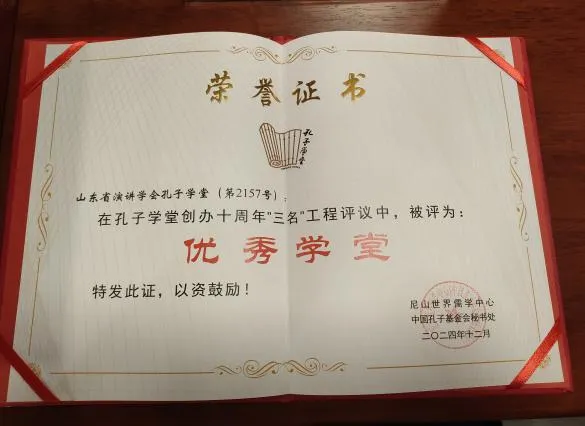 荣誉证书
孔子学堂
山东省演讲学会孔子学堂（第2157号）：
在孔子学堂创办十周年"三名"工程评议中，被评为：
优秀学堂
特发此证，以资鼓励！
尼山世界儒学中心
中国孔子基金会秘书处
二〇二四年十二月